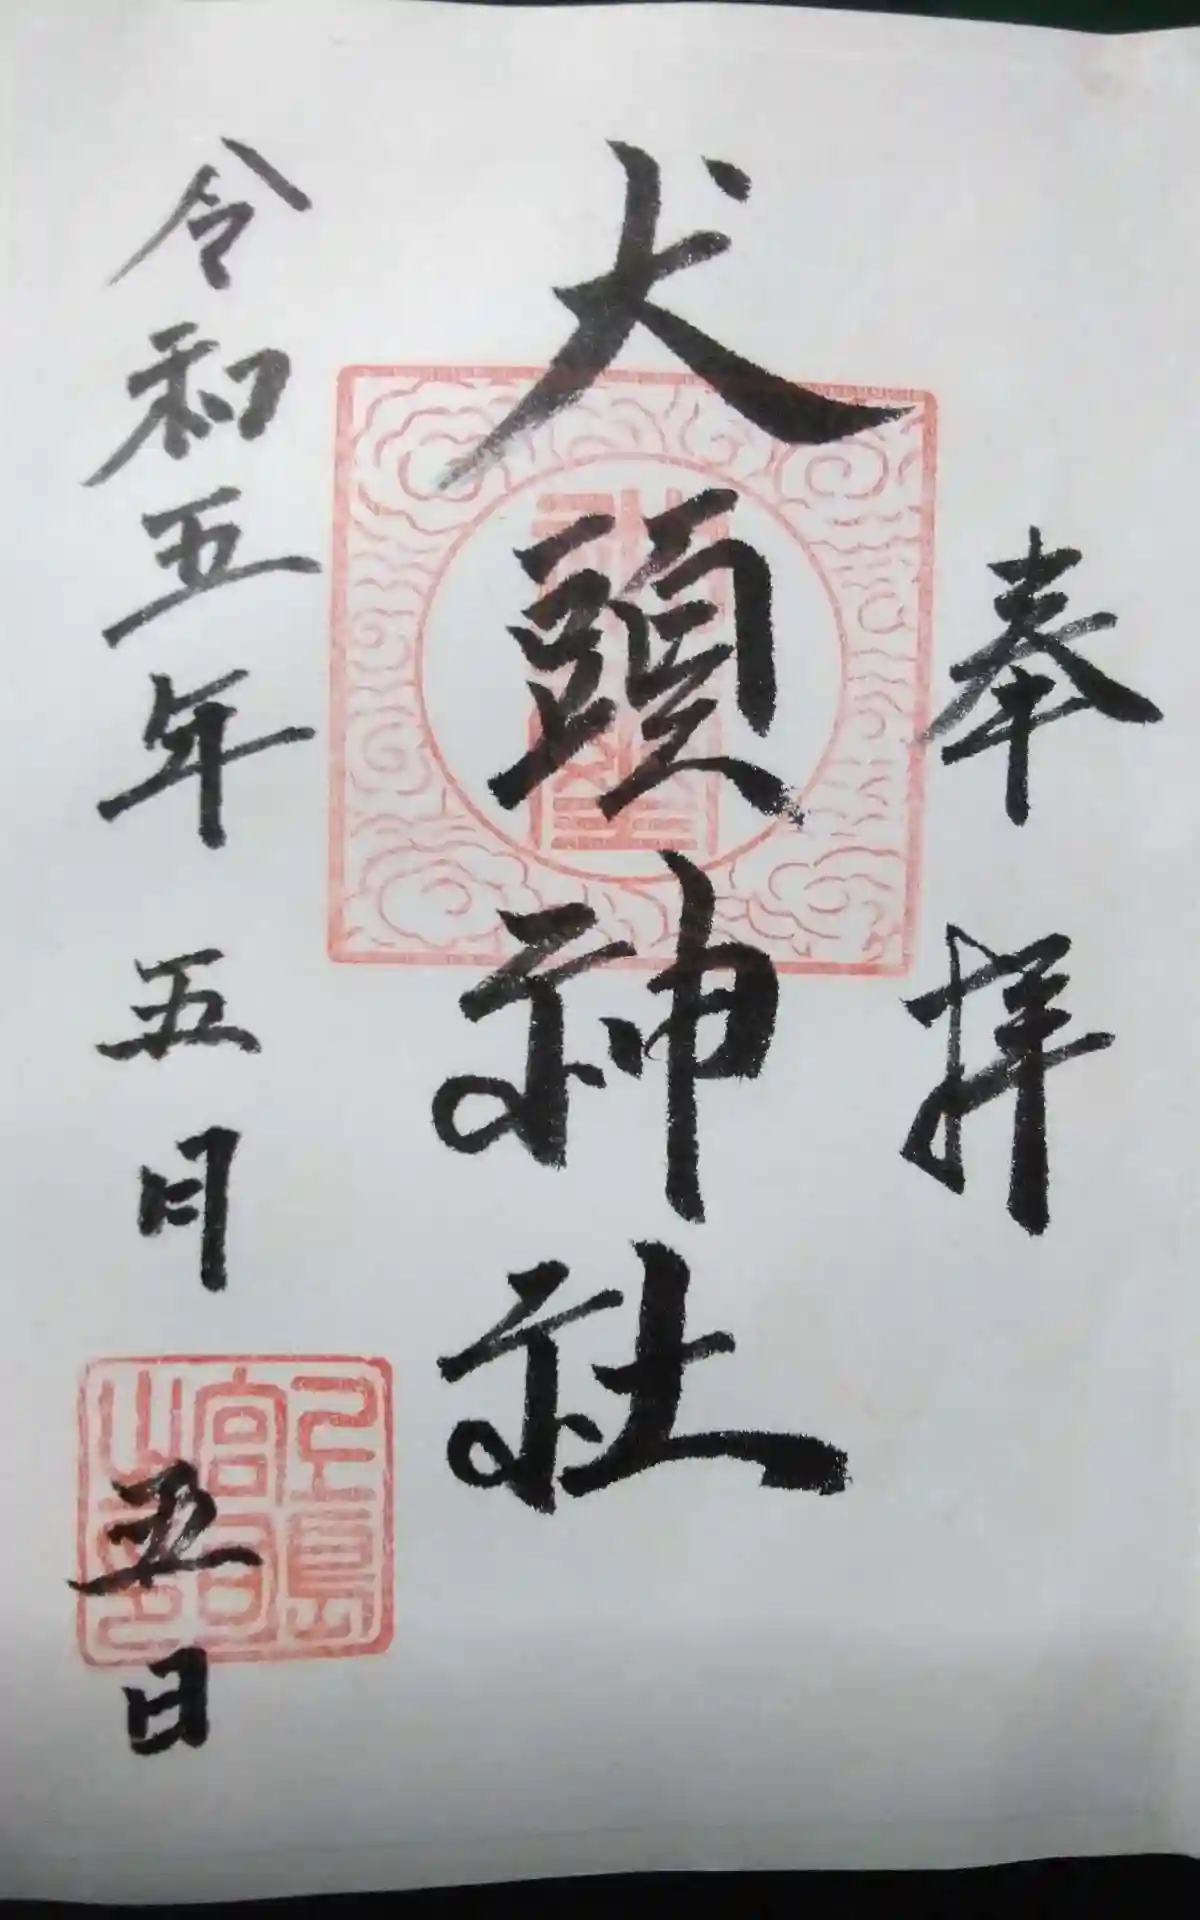 奉拝
犬頭神社
令和五年 五月 五日